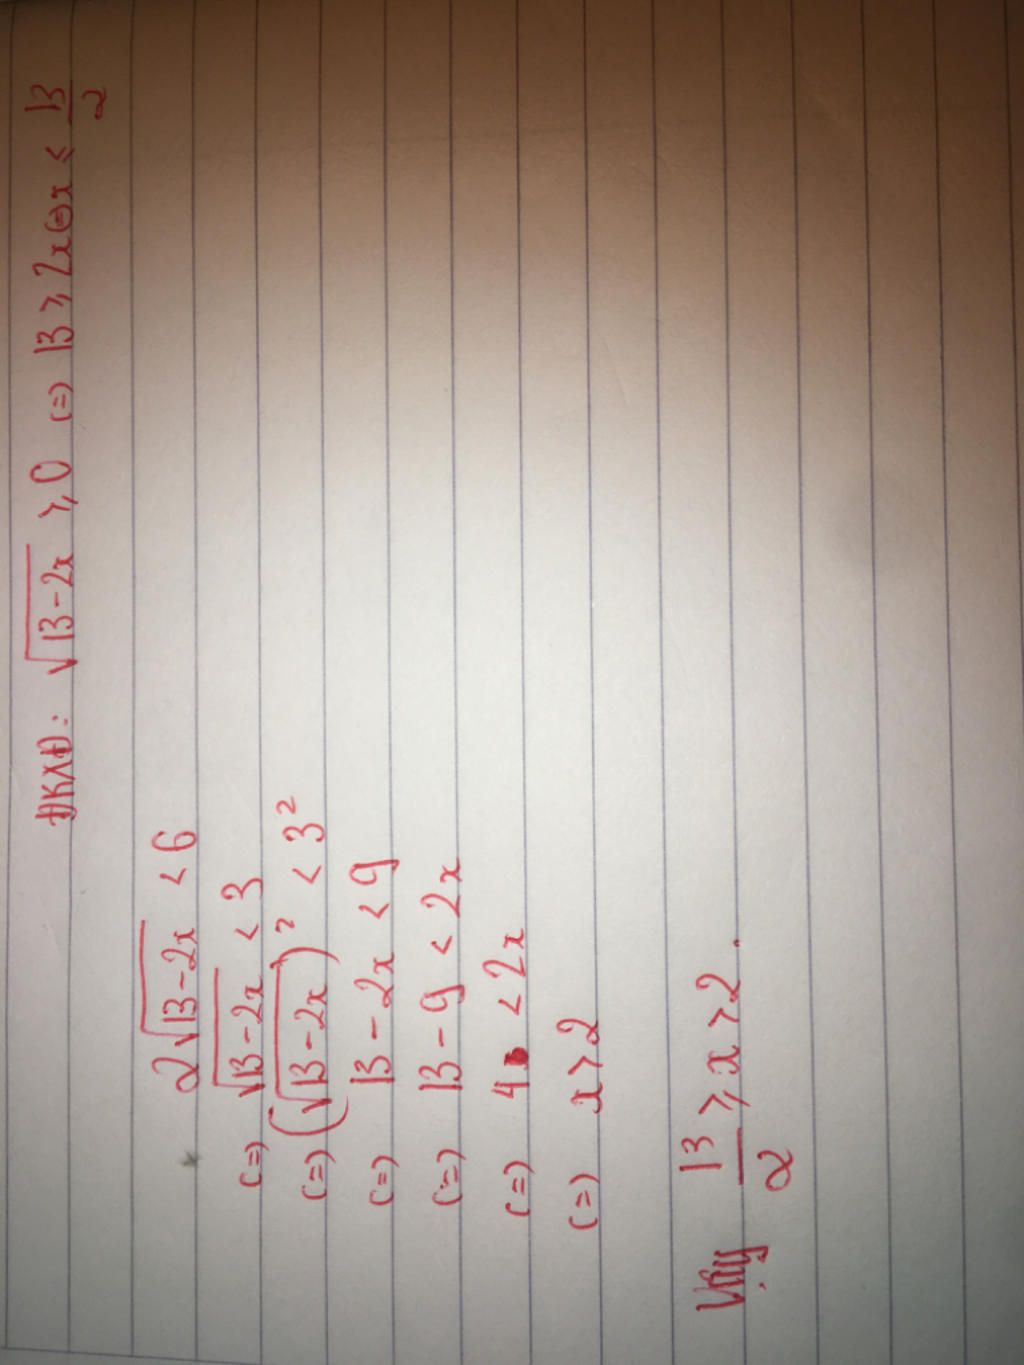 ĐKXĐ: √13-2x ≥ 0 (=) 13 ≥ 2x (=) x ≤ 13/2
2√13-2x < 6
(=) √13-2x < 3
(=) (√13-2x)² < 3²
(=) 13-2x < 9
(=) 13-9 < 2x
(=) 4 < 2x
(=) x > 2
Vậy 13/2 ≥ x > 2.